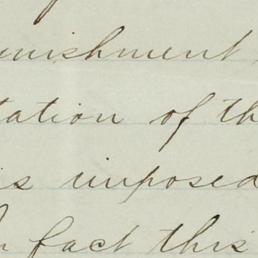 unishment
tation of th
is imposed
fact this